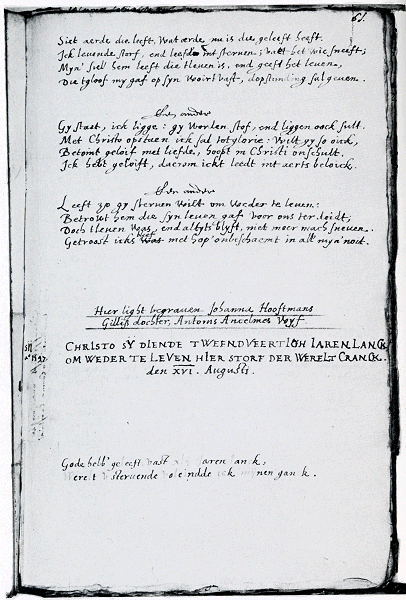 61.
Siet aerde die leeft, Wat aerde nu is die geleeft heeft.
Ick levende storf, end leefde int sterven; valt het wie sneeft;
Myn' siel' hem leeft die tleven is, end geeft het leven,
Die tgloof my gaf op syn Woirt vast, dopstanding sal geven.
Een ander
Gy staet, ick ligge: gy worden stof, end liggen oock sult.
Met Christo opstaen ick sal tot glorie: Wilt gy so oick,
Betoint geloif met liefde, hoopt in Christi onschult.
Ick hebt geloift, daerom ickt leedt int aerts beloick.
Een ander
Leeft zo gy sterven Wilt om Weder te leven:
Betrowt hem die syn leven gaf voor ons ter leidt;
Doch tleven Was, end altyts blyft, niet meer mach sneven.
Getroost ick's Was met hop' onbeschaemt in all' myn' noot.
Hier light begraven Johanna Hooftmans
Gillis dochter, Antonis Anselmos Wyf
CHRISTO SY DIENDE TWEENDVEERTICH IAREN LANCK
OM WEDER TE LEVEN HIER STORF DER WERELT CRANCK.
den XVI. Augusti.
1597.
Gode heb' geleeft vast aren lanck;
Werelt stervende voleindde ick mynen ganck.